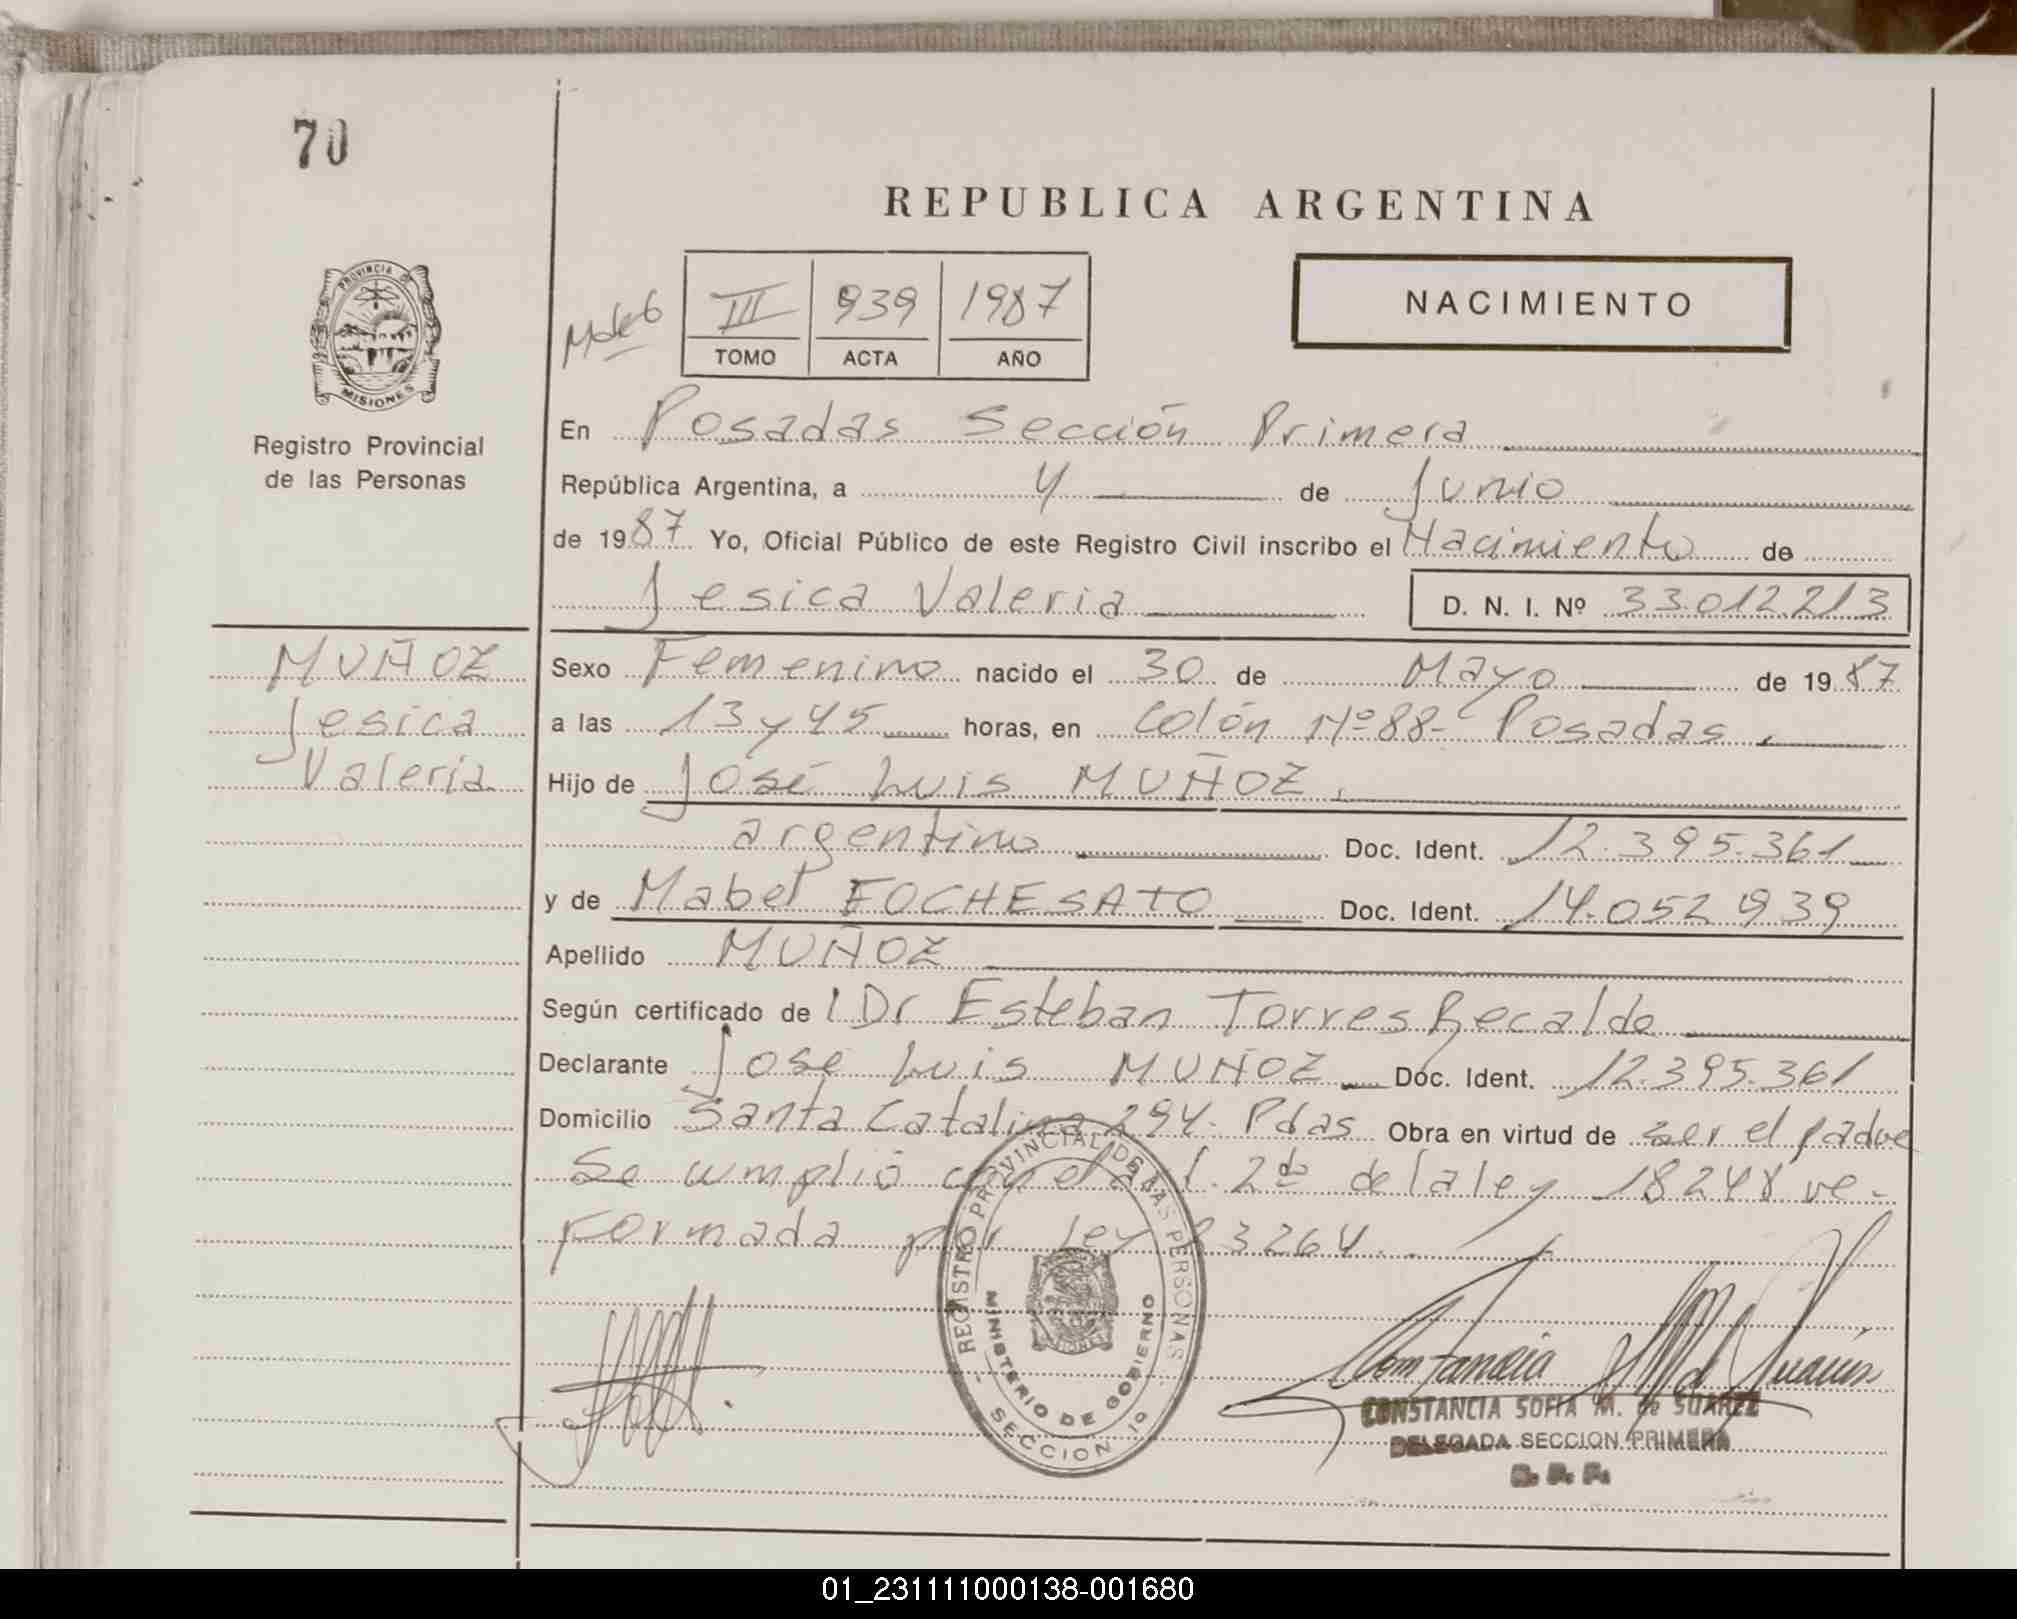 70
REPUBLICA ARGENTINA
PROVINCIA DE
MISIONES
Registro Provincial
de las Personas
III 939 1987
TOMO ACTA AÑO
NACIMIENTO
En Posadas Sección Primera
República Argentina, a 4 de Junio
de 1987 Yo, Oficial Público de este Registro Civil inscribo el Nacimiento de
Jesica Valeria D. N. I. Nº 33.012.213
MUÑOZ
Jesica
Valeria
Sexo Femenino nacido el 30 de Mayo de 1987
a las 13 y 45 horas, en Colón Nº 88- Posadas.
Hijo de José Luis MUÑOZ.
argentino Doc. Ident. 12.395.361
y de Mabel FOCHESATO Doc. Ident. 14.052.939
Apellido MUÑOZ
Según certificado de l Dr Esteban Torres Recalde
Declarante José Luis MUÑOZ Doc. Ident. 12.395.361
Domicilio Santa Catalina 294. Pdas Obra en virtud de ser el padre
Se cumplió con el a t. 2do de la ley 18248 re-
formada por ley 23264.
REGISTRO PROVINCIAL DE LAS PERSONAS
MINISTERIO DE GOBIERNO
- SECCION 1º -
Constancia M de Suarez
CONSTANCIA SOFIA M. de SUAREZ
DELEGADA SECCION PRIMERA
01_231111000138-001680